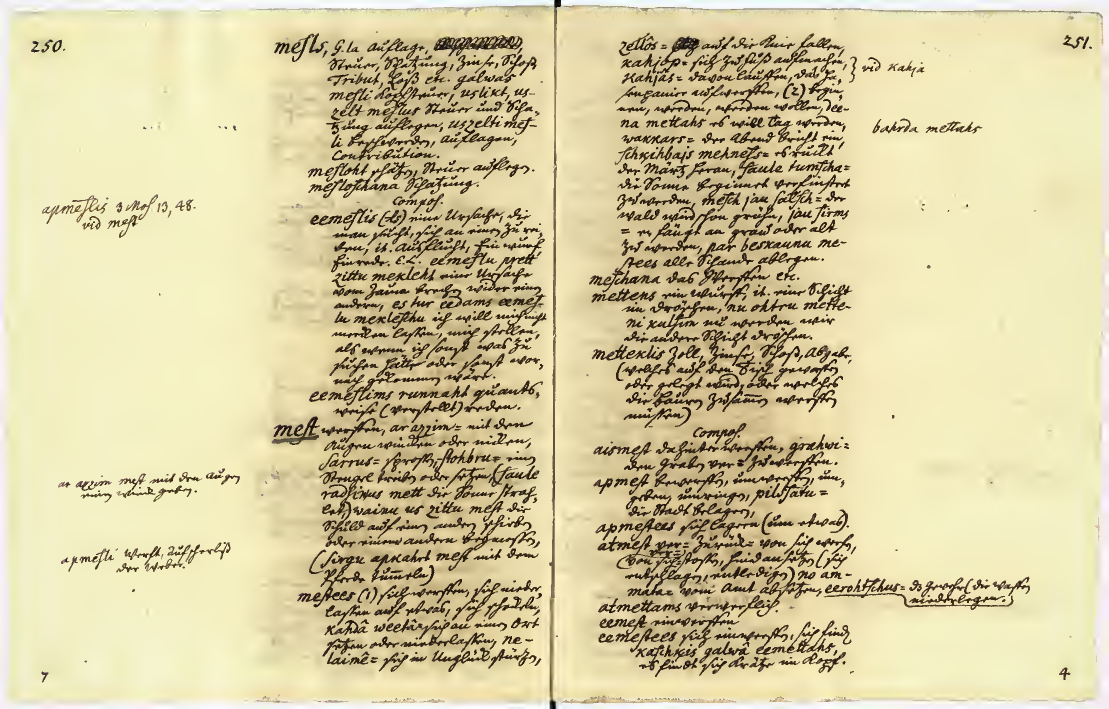 250.
mesls, G. la Auflage,
Steuer, Schatzung, Zinse, Schoß,
Tribut, Zeiß etc. galwas
mesli Kopfsteuer, uslikt, us-
zelt meslus Steuer und Scha-
tzung auflegen, uszelti mes-
li beschwerden, Auflagen,
Contribution.
mesloht schätzen, Steuer auflegen.
mesloschana Schatzung.
Compos.
eemeslis (-ls) eine Ursache, die
man sucht, sich an einen zu rei-
ben, it. Ausflucht, Einwurf
Einrede. C.L. eemeslu prett
zittu mekleht eine Ursache
vom Zaune brechen wider einen
andern, es tur eedams eemes-
lu meklešhu ich will mich
merken lassen, mich stellen,
als wenn ich sonst was zu
suchen hätte oder sonst wor-
nach gekommen wäre.
eemeslims runnaht quants-
weise (verstellt) reden.
mest werffen, ar azzim= mit den
Augen wincken oder nicken,
sarrus= sprossen, stohbru= einen
Stengel treiben oder setzen, (saule
radsinus mett die Sonne strah-
let) wainu us zittu mest die
Schuld auf einen andern schieben
oder einem andern beymessen,
(sirgu apkahrt mest mit dem
Pferde tumeln)
mestees (1) sich werffen, sich nieder
lassen auf etwas, sich schicken,
kahdâ weetâ sich an einen Ort
setzen oder niederlassen, ne-
laimê= sich in Unglück stürzen,
apmeslis 3 Mos 13, 48.
vid mest
ar azzim mest mit den Augen
einen Winck geben.
apmesli Werft, Aufscherliß
der Weber.
7
251.
zellôs= auf die Knie fallen,
kahjop= sich zu Fuß aufmachen,
kahjâs= davon lauffen, das Ha-
senpanier aufwerffen, (2) begin-
nen, werden, werden wollen, dee-
na mettahs es will Tag werden,
wakkars= der Abend bricht ein,
schkihbajs mehness= es rückt
der Märtz heran, saule tumscha=
die Sonne beginnet verfinstert
zu werden, mesch jau salsch= der
Wald wird schon grün, jau sirms
= er fängt an grau oder alt
zu werden, par beskaunu me-
stees alle Schande ablegen.
meschana das Werffen etc.
mettens ein Wurff, it. eine Schicht
im Dröschen, nu ohtru mette-
ni kulsim nu werden wir
die andere Schicht dröschen.
metteklis Zoll, Zinse, Schoß, Abgabe,
(welches auf den Tisch geworffen
oder gelegt wird, oder welches
die Bauren zusamen werffen
müssen)
Compos.
aismest dahinter werffen, grahwi=
den Graben ver= zuwerffen.
apmest bewerffen, umwerffen, um-
geben, umringen, pilssatu=
die Stadt belagern,
apmestees sich lagern (um etwas).
atmest ver= zurück= von sich werfen,
ver=
(von sich) stossen, hindansetzen (sich
entschlagen, entledigen) no am-
mata= vom Amt absetzen, eerohtschus= das Gewehr (die Waffen
niederlegen.)
atmettams verwerflich.
eemest einwerffen
eemestees sich einwerffen, sich finden
kaschkis galwâ eemettahs,
es findt sich Krätze im Kopf.
vid kahja
bahrda mettahs
4